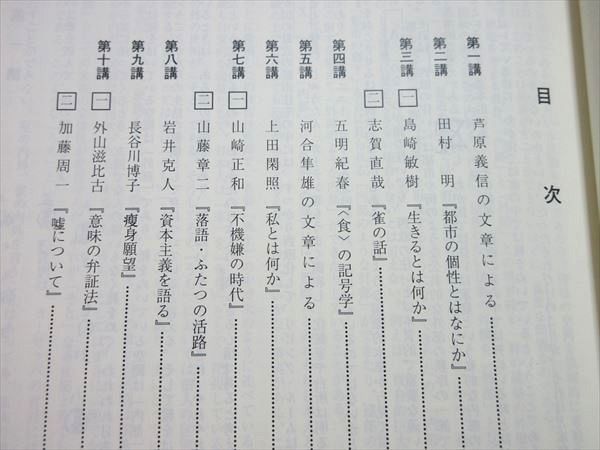 目次
第一講 芦原義信の文章による
第二講 田村 明『都市の個性とはなにか』
第三講 一 島崎敏樹『生きるとは何か』
二 志賀直哉『雀の話』
第四講 五明紀春『〈食〉の記号学』
第五講 河合隼雄の文章による
第六講 上田閑照『私とは何か』
第七講 一 山崎正和『不機嫌の時代』
二 山藤章二『落語・ふたつの活路』
第八講 岩井克人『資本主義を語る』
第九講 長谷川博子『瘦身願望』
第十講 一 外山滋比古『意味の弁証法』
二 加藤周一『嘘について』